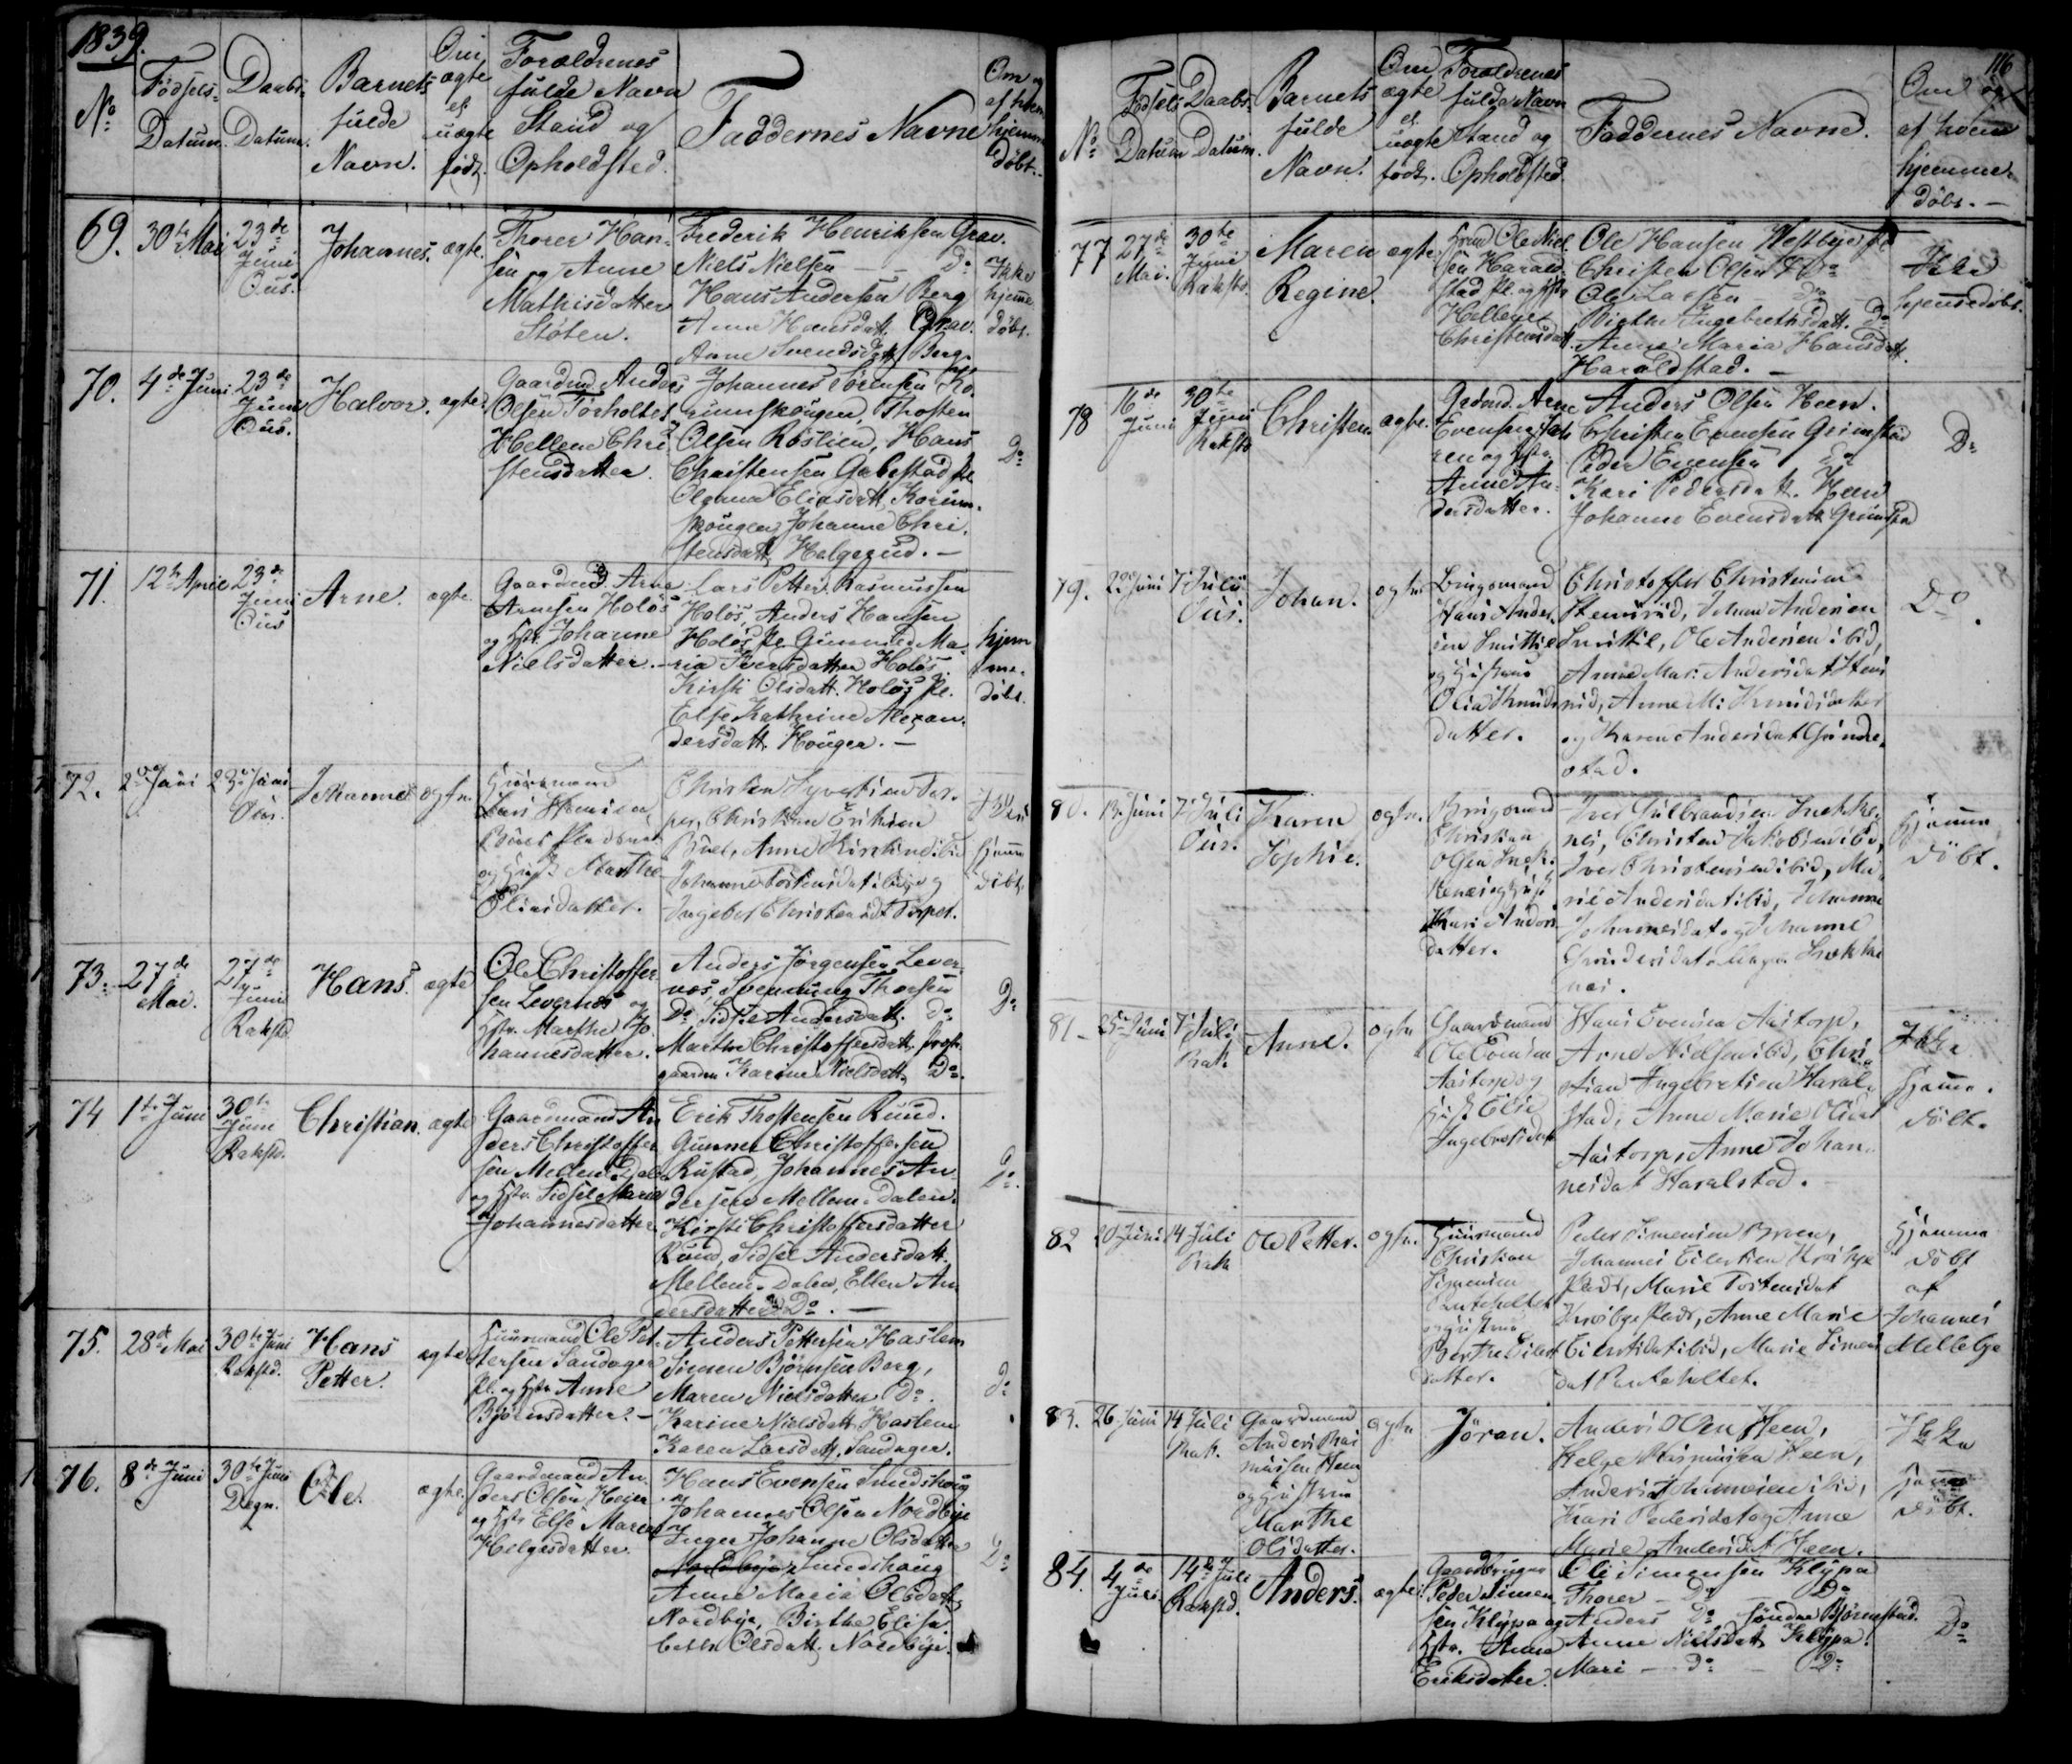 1839.
No
Fødsels-
Datum.
Daabs-
Datum.
Barnets
fulde
Navn.
Om
ægte
el.
uægte
født.
Forældrenes
fulde Navn
Stand og
Opholdsted.
Faddernes Navne
Om og
af hvem
hjemme
døbt.
69. 30te Mai
23de
Juni
Ous.
Johannes. ægte.
Thorer Han-
sen og Anne
Mathisdatter
Støten.
Frederik Henriksen Grav.
Niels Nielsen - Do
Hans Andersen Berg
Anne Hansdatt. Grav.
Anne Svendsdatt. Berg.
Ikke
hjemme
døbt.
70. 4de Juni
23de
Juni
Ous.
Halvor. ægte.
Gaardmd. Anders
Olsen Torholtet
Hellene Chri-
stensdatter.
Johannes Sørensen Ko-
rumskougen, Thosten
Olsen Røslien, Hans
Christensen Gabestad pl.
Oleana Eliasdatt. Korum-
skougen Johanne Chri-
stensdatt. Helgerud. -
Do
71. 12te April
23de
Juni
Ous
Arne. ægte.
Gaardmd. Arne
Arnesen Holøs
og Hstr. Johanne
Nielsdatter.
Lars Petter Rasmussen
Holøs, Anders Hansen
Holøs pl. Gunnild Ma-
ria Iversdatter Holøs
Kirsti Olsdatt. Holøs pl.
Else Kathrine Alexan-
dersdatt. Houger. -
hjem
me-
døbt.
72. 2 Juni 23 Juni
Ous.
Johannes ægte.
Huusmand
Lars Hansen
og Hust. Marthe
Eliasdatter.
Christen Syvertsen Tor-
per, Christian Eriksen
Anne Kirstine ibid
Johanne Tostensdat ibid og
Ingebor Christensdt Torper.
Ikke
hjemme
døbt.
73. 27de
Mai.
27de
Juni
Rakstd.
Hans. ægte
Ole Christoffer-
sen Levernæs og
Hstr. Marthe Jo-
hannesdatter.
Anders Jørgensen Lever-
næs, Svenning Thorsen
Do Sidsle Andersdatt. do
Marthe Christoffersdatt. Præste-
gaarden Karine Nielsdatt. Do.
Do
74 1te Juni
30te
Juni
Rakstd.
Christian. ægte
Gaardmand An-
ders Christoffer-
sen Mellem-Dalen
og Hstr. Sidsel Maria
Johannesdatter
Erik Thostensen Ruud.
Gunner Christoffersen
Rustad, Johannes An-
dersen Mellem-Dalen.
Kirsti Christoffersdatter
Ruud, Sidsel Andersdatt.
Mellem-Dalen, Ellen An-
dersdatter Do. -
Do.
75. 28de Mai 30te Juni
Rakstd.
Hans
Petter.
ægte
Huusmand Ole Pet-
tersen Sandager
pl. og Hstr. Anne
Bjørnsdatter. -
Anders Pettersen Haslem
Simen Bjørnsen Berg,
Maren Nielsdatter Do.
Karine Nielsdatt. Haslem
Karen Larsdatt. Sandager.
do
76. 8de Juni 30te Juni
Degn.
Ole. ægte.
Gaardmand An-
ders Olsen Heier
og Hstr. Else Maren
Helgesdatter.
Hans Evensen Smedshoug
Johannes Olsen Nordbye
Inger Johanne Olsdatter
Nordbye, Smedshaug
Anne Maria Olsdatt.
Nordbye, Birthe Elisa-
beth Olsdatt. Nordbye.
Do
116
No
Fødsels
Datum
Daabs-
Datum.
Barnets
fulde
Navn.
Om
ægte
el.
uægte
født.
Forældrenes
fulde Navn
Stand og
Opholdsted.
Faddernes Navne.
Om og
af hvem
hjemme-
døbt. -
77 27de
Mai.
30te
Juni
Rakstd.
Maren
Regine.
ægte
Hmd Ole Niel-
sen Harald-
stad pl. og Hstr.
Hellene
Christensdatt.
Ole Hansen Westbye pl.
Christen Olsen Do
Ole Larsen do
Birthe Ingebrethsdatt. do
Anne Maria Hansdatt.
Haraldstad. -
Ikke
hjemmedøbt.
78 16de
Juni
30te
Juni
Rakstd
Christen. ægte.
Gadmd. Arne
Evensen
og Hstr.
Anne An-
dersdatter.
Anders Olsen Heen.
Christen Evensen Grimstad
Peder Evensen Do
Kari Pedersdatt. Heen
Johanne Evensdatt. Grimstad
Do
79. 22 Juni 7 Juli
Ous.
Johan. ægte.
Brugsmand
Hans Ander-
sen Smittil
og Hustrue
Olia Knuds-
datter.
Christoffer Christensen
Stensrud, Johan Andersen
Smittil, Ole Andersen ibid,
Anne Mari Andersdat Stens-
rud, Anne M: Knudsdatter
og Karen Andersdat Grimme-
stad.
Do.
80. 13 Juni 7 Juli
Ous.
Karen
Sophie.
ægte.
Brugsmand
Christian
Olsen Snek-
kenæs og Hust.
Kari Anders-
datter.
Iver Gulbrandsen Snekke-
næs, Christen Jakobsen ibid,
Iver Christensen ibid, Ma-
rie Andersdat ibid, Johanne
Johannesdat og Johanne
næs.
hjemme
døbt.
81 - 25 Juni 7 Juli
Rak.
Anne. ægte
Gaardmand
Ole Evensen
Aastorp og
Hust. Else
Ingebretsdatt.
Hans Evensen Aastorp,
Arne Nielsen ibid, Chri-
stian Ingebretsen Haral-
stad, Anne Marie Olsdat
Aastorp, Anne Johan-
nesdat Haralstad.
Ikke
hjemme-
døbt.
82 20 Juni 14 Juli
Rak
Ole Petter. ægte.
Huusmand
Christian
Simensen
Ranteholtet
og Hustrue
Berthe Eilerts-
datter.
Peder Simensen Braten,
Johannes Eilertsen Kråkbye
Plads, Marie Tostensdat
Kråkbye Plads, Anne Marie
Eilertsdat ibid, Marie Simens-
dat Ranteholtet.
hjemme
døbt
af
Johannes
Mellebye
83. 26 Juni 14 Juli
Rak.
Gaardmand
Anders Ras-
mussen Heen
og Hustrue
Marthe
Olsdatter.
ægte Jøran.
Anders Olsen Heen,
Helge Rasmussen Heen,
Anders Johannesen ibid,
Kari Pedersdat og Anne
Marie Andersdat Heen.
Ikke
hjemme
døbt.
84. 4de
Juli
14de Juli
Rakstd.
Anders. ægte.
Gaardbruger
Peder Simen-
sen Klypa og
Hstr. Anne
Eriksdatter.
Ole Simensen Klypa
Thorer - Do - Do
Anders Do Søndre Bjørnstad.
Anne Nielsdatt. Klypa.
Mari - Do - Do
Do